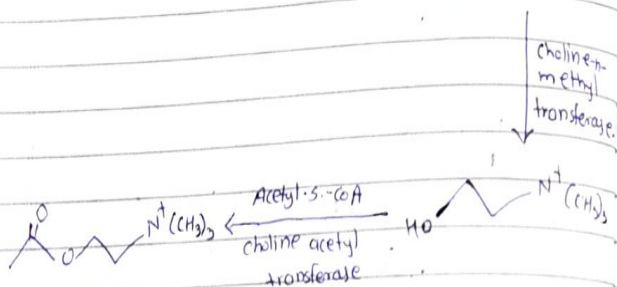 choline-n-
methyl
transferase.
O
O
N+(CH3)3
Acetyl-S-CoA
choline acetyl
transferase
HO
N+(CH3)3